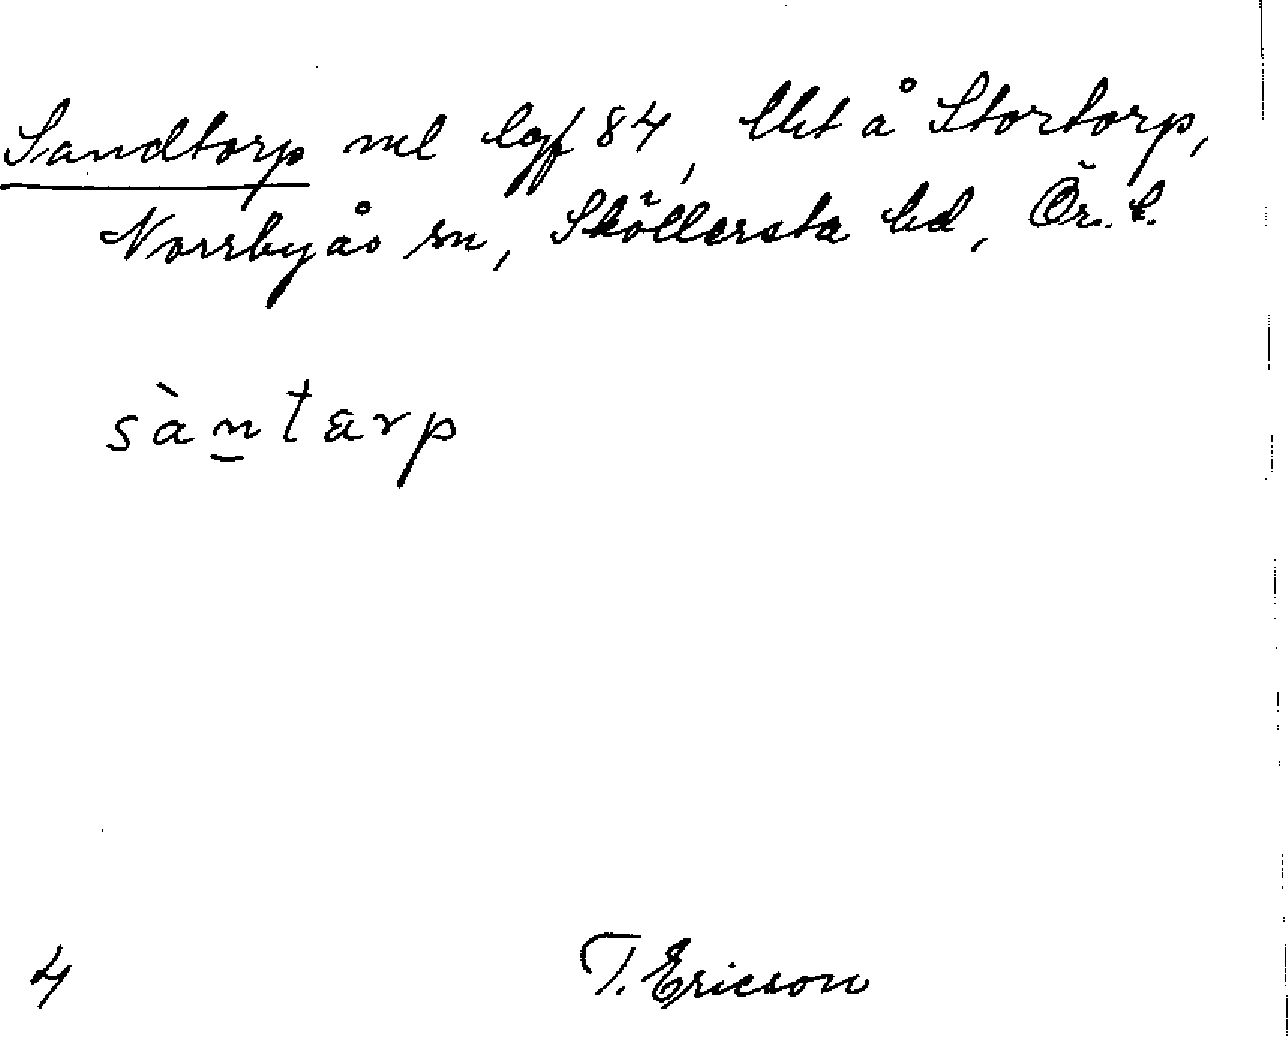 Sandtorp nel lgf 84, Ut å Stortorp,
Norrbyås sn, Sköllersta hd, Ör. l.
sàn̲tarp
4 T. Ericson